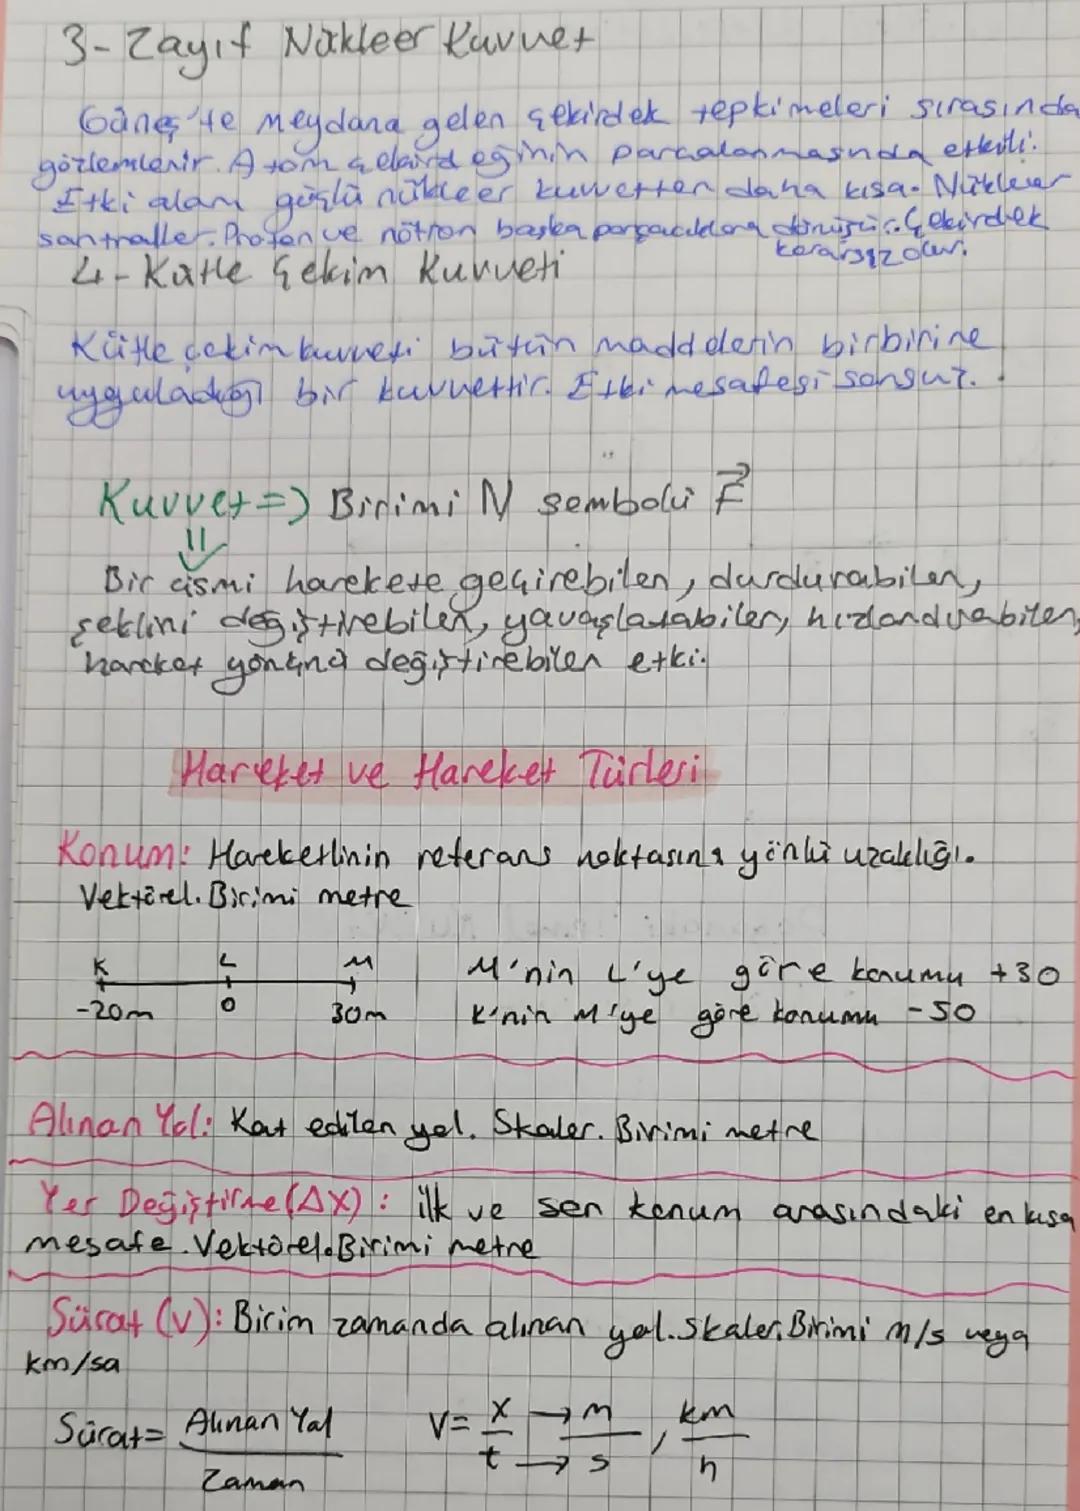 3- Zayıf Nükleer Kuvvet
Güneş'te meydana gelen çekirdek tepkimeleri sırasında
gözlemlenir. Atom çekirdeğinin parçalanmasında etkili.
Etki alanı güçlü nükleer kuvvetten daha kısa. Nükleer
santraller. Proton ve nötron başka parçacıklara dönüşür. Çekirdek
kararsız olur.
4- Kütle Çekim Kuvveti
Kütle çekim kuvveti bütün maddelerin birbirine
uyguladığı bir kuvvettir. Etki mesafesi sonsuz.
Kuvvet => Birimi N sembolü F
Bir cismi harekete geçirebilen, durdurabilen,
şeklini değiştirebilen, yavaşlatabilen, hızlandırabilen,
hareket yönünü değiştirebilen etki.
Hareket ve Hareket Türleri
Konum: Hareketlinin referans noktasına yönlü uzaklığı.
Vektörel. Birimi metre
K L M
-20m 0 30m
M'nin L'ye göre konumu +30
K'nin M'ye göre konumu -50
Alınan Yol: Kat edilen yol. Skaler. Birimi metre
Yer Değiştirme (ΔX) : ilk ve son konum arasındaki en kısa
mesafe. Vektörel. Birimi metre
Sürat (V): Birim zamanda alınan yol. Skaler. Birimi m/s veya
km/sa
Sürat= Alınan Yol V= X → m , km
Zaman t → s h